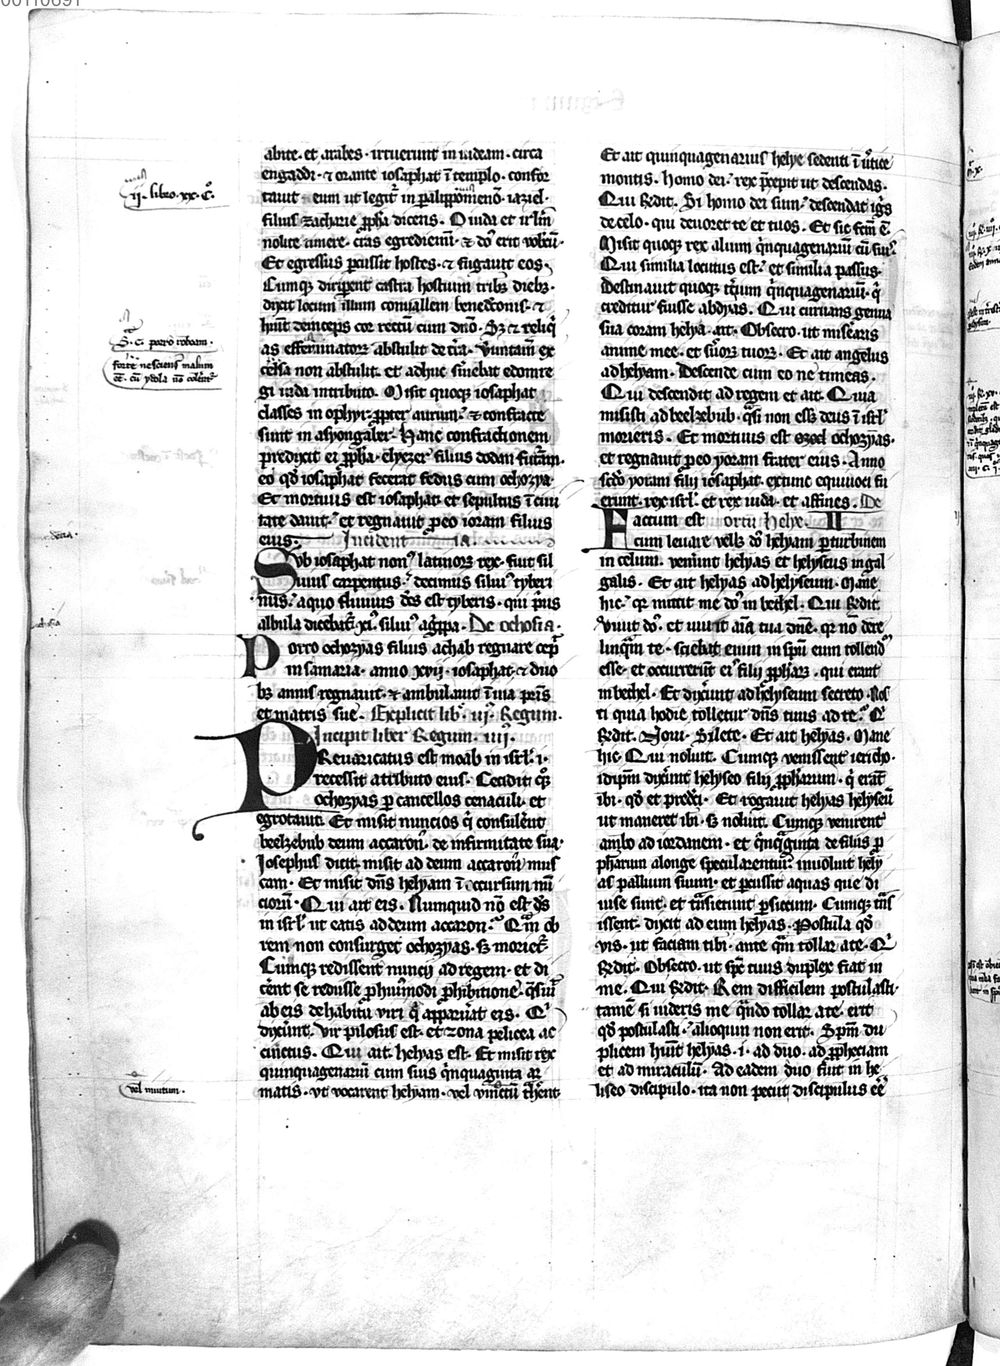 abite· et arabes· irruerunt in iudeam· circa
engaddi· ⁊ orante iosaphat ī templo· confor
tauit eum ut legit᷑ in palipomenō· iaziel·
filius zacharie ꝓpha dicens· O iuda et irl̄m
nolite timere· cras egrediemī· ⁊ dn̄s erit vobcū·
Et egressus ꝑcussit hostes· ⁊ fugauit eos·
Cumqꝫ diriperent castra hostium tribꝫ diebꝫ·
dixit locum illum conuallem benedc̄onis· ⁊
hn̄t deinceps cor rectū cum dn̄o· Sꝫ ⁊ reliq̄
as effeminatoꝝ abstulit de tr̄a· Veruntam̄ ex
cel̄sa non abstulit· et adhuc siuebat edom re
gi iuda in tributo· Misit quoqꝫ iosaphat
classes in ophyr· ꝓpter aurum· ⁊ confracte
sunt in asyongaber· Hanc confractionem
predixit ei ꝓpha· elyezer filius dodan futurā·
eo qd̄ iosaphat fecerat fedus cum ochozya·
Et mortuus est iosaphat· et sepultus ī ciui
tate dauit· et regnauit ꝓ eo ioram filius
eius· Incident ia
Sub iosaphat non latinoꝝ rex· fuit sil
uius carpentus· decimus siluius tyberi
nus· a quo fluuius dc̄s est tyberis· qui prius
albula dicebat᷑ xi· siluius agrippa· De ochosia·
Porro ochozyas filius achab regnare cepit
in samaria· anno xvii· iosaphat· ⁊ duo
bꝫ annis regnauit· ⁊ ambulauit ī uia patris
et matris sue· Explicit lib· iii· Regum·
Incipit liber Regum· iiii·
PReuaricatus est moab in isrl̄· i·
recessit a tributo eius· Cecidit qꝫ
ochozyas ꝑ cancellos cenaculi· et
egrotauit· Et misit nuncios q̄ consulerent
beelzebub deum accaron· de infirmitate sua·
Iosephus dicit· misit ad deum accaron mus
cam· Et misit dn̄s helyam ī occursum nū
ciorū· Qui ait eis· Numquid nō est ds̄
in isrl̄ ut eatis ad deum accaron· Quam ob
rem non consurget ochozyas· sꝫ moriet᷑
Cumqꝫ redissent nuncij ad regem· et di
cerent se redisse ꝓ huiusmodi ꝓhibitione· quesiuit
ab eis de habitu viri qui apparuerat eis· Qui
dixerunt· Vir pilosus est· et zona pelicea ac
cinctus· Qui ait· helyas est· Et misit rex
quinquagenariū cum suis quinquaginta ar
matis· vt vocarent helyam· vel vinctū traherent
Et ait quinquagenarius helye sedenti ī uertice
montis· Homo dei· rex precepit ut descendas·
Qui respondit· Si homo dei sum· descendat ignis
de celo· qui deuoret te et tuos· Et sic fcm̄ ē·
Misit quoqꝫ rex alium quinquagenariū cū suis·
Qui similia locutus est· et similia passus·
Destinauit quoqꝫ tercium quinquagenariū· qui
creditur fuisse abdyas· Qui curuans genua
sua coram helya· ait· Obsecro· ut miseraris
anime mee· et suorum tuoꝝ· Et ait angelus
ad helyam· Descende cum eo ne timeas·
Qui descendit ad regem et ait· Quia
misisti ad beelzebub· quasi non esset deus ī isrl̄
morieris· Et mortuus est ochozyas·
et regnauit ꝓ eo yoram frater eius· Anno
scd̄o yoram filij iosaphat· extunc equiuoci fu
erunt· rex isrl̄· et rex iuda· et affines· De
Factum est ortu Helye· II
cum leuare vellet dn̄s helyam ꝑ turbinem
in celum· venerunt helyas et helyseus in gal
galis· Et ait helyas ad helyseum· Mane
hic· quia mittit me dn̄s in bethel· Qui respondit
Viuit dn̄s· et uiuit aīa tua dn̄e· quia nō dere
linquam te· Sciebat enim in spū eum tollendum
esse· et occurrerunt eis filij ꝓphaꝝ· qui erant
in bethel· Et dixerunt ad helyseum secreto· Nos
ti quia hodie tolletur dn̄s tuus ad te· Qui
respondit· Noui· Silete· Et ait helyas· Mane
hic· Qui noluit· Cumqꝫ venissent iericho·
idipsum dixerunt helyseo filij ꝓpharum· qui erant
ibi· qd̄ et prodixi· Et rogauit helyas helyseū
ut maneret ibi· sꝫ noluit· Cumqꝫ venirent
ambo ad iordanem· et quinquaginta de filiis ꝓ
pharum a longe specularentur· inuoluit hely
as pallium suum· et percussit aquas que di
uise sunt· et transierunt ꝑ siccum· Cumqꝫ trans
issent· dixit ad eum helyas· Postula qd̄
vis· ut faciam tibi· ante quam tollar a te· Qui
respondit· Obsecro· ut spc̄ tuus duplex fiat in
me· Qui respondit· Rem difficilem postulasti·
tamen si uideris me quando tollar a te· erit
qd̄ postulasti· alioquin non erit· Spm̄ du
plicem habuit helyas· i· ad duo· ad ꝓpheciam
et ad miraculum· Ad eadem duo fuit in he
liseo discipulo· ita non petiit discipulus eē
ii· libro· xx· c̄·
forte nesciens malum
vel mutum·